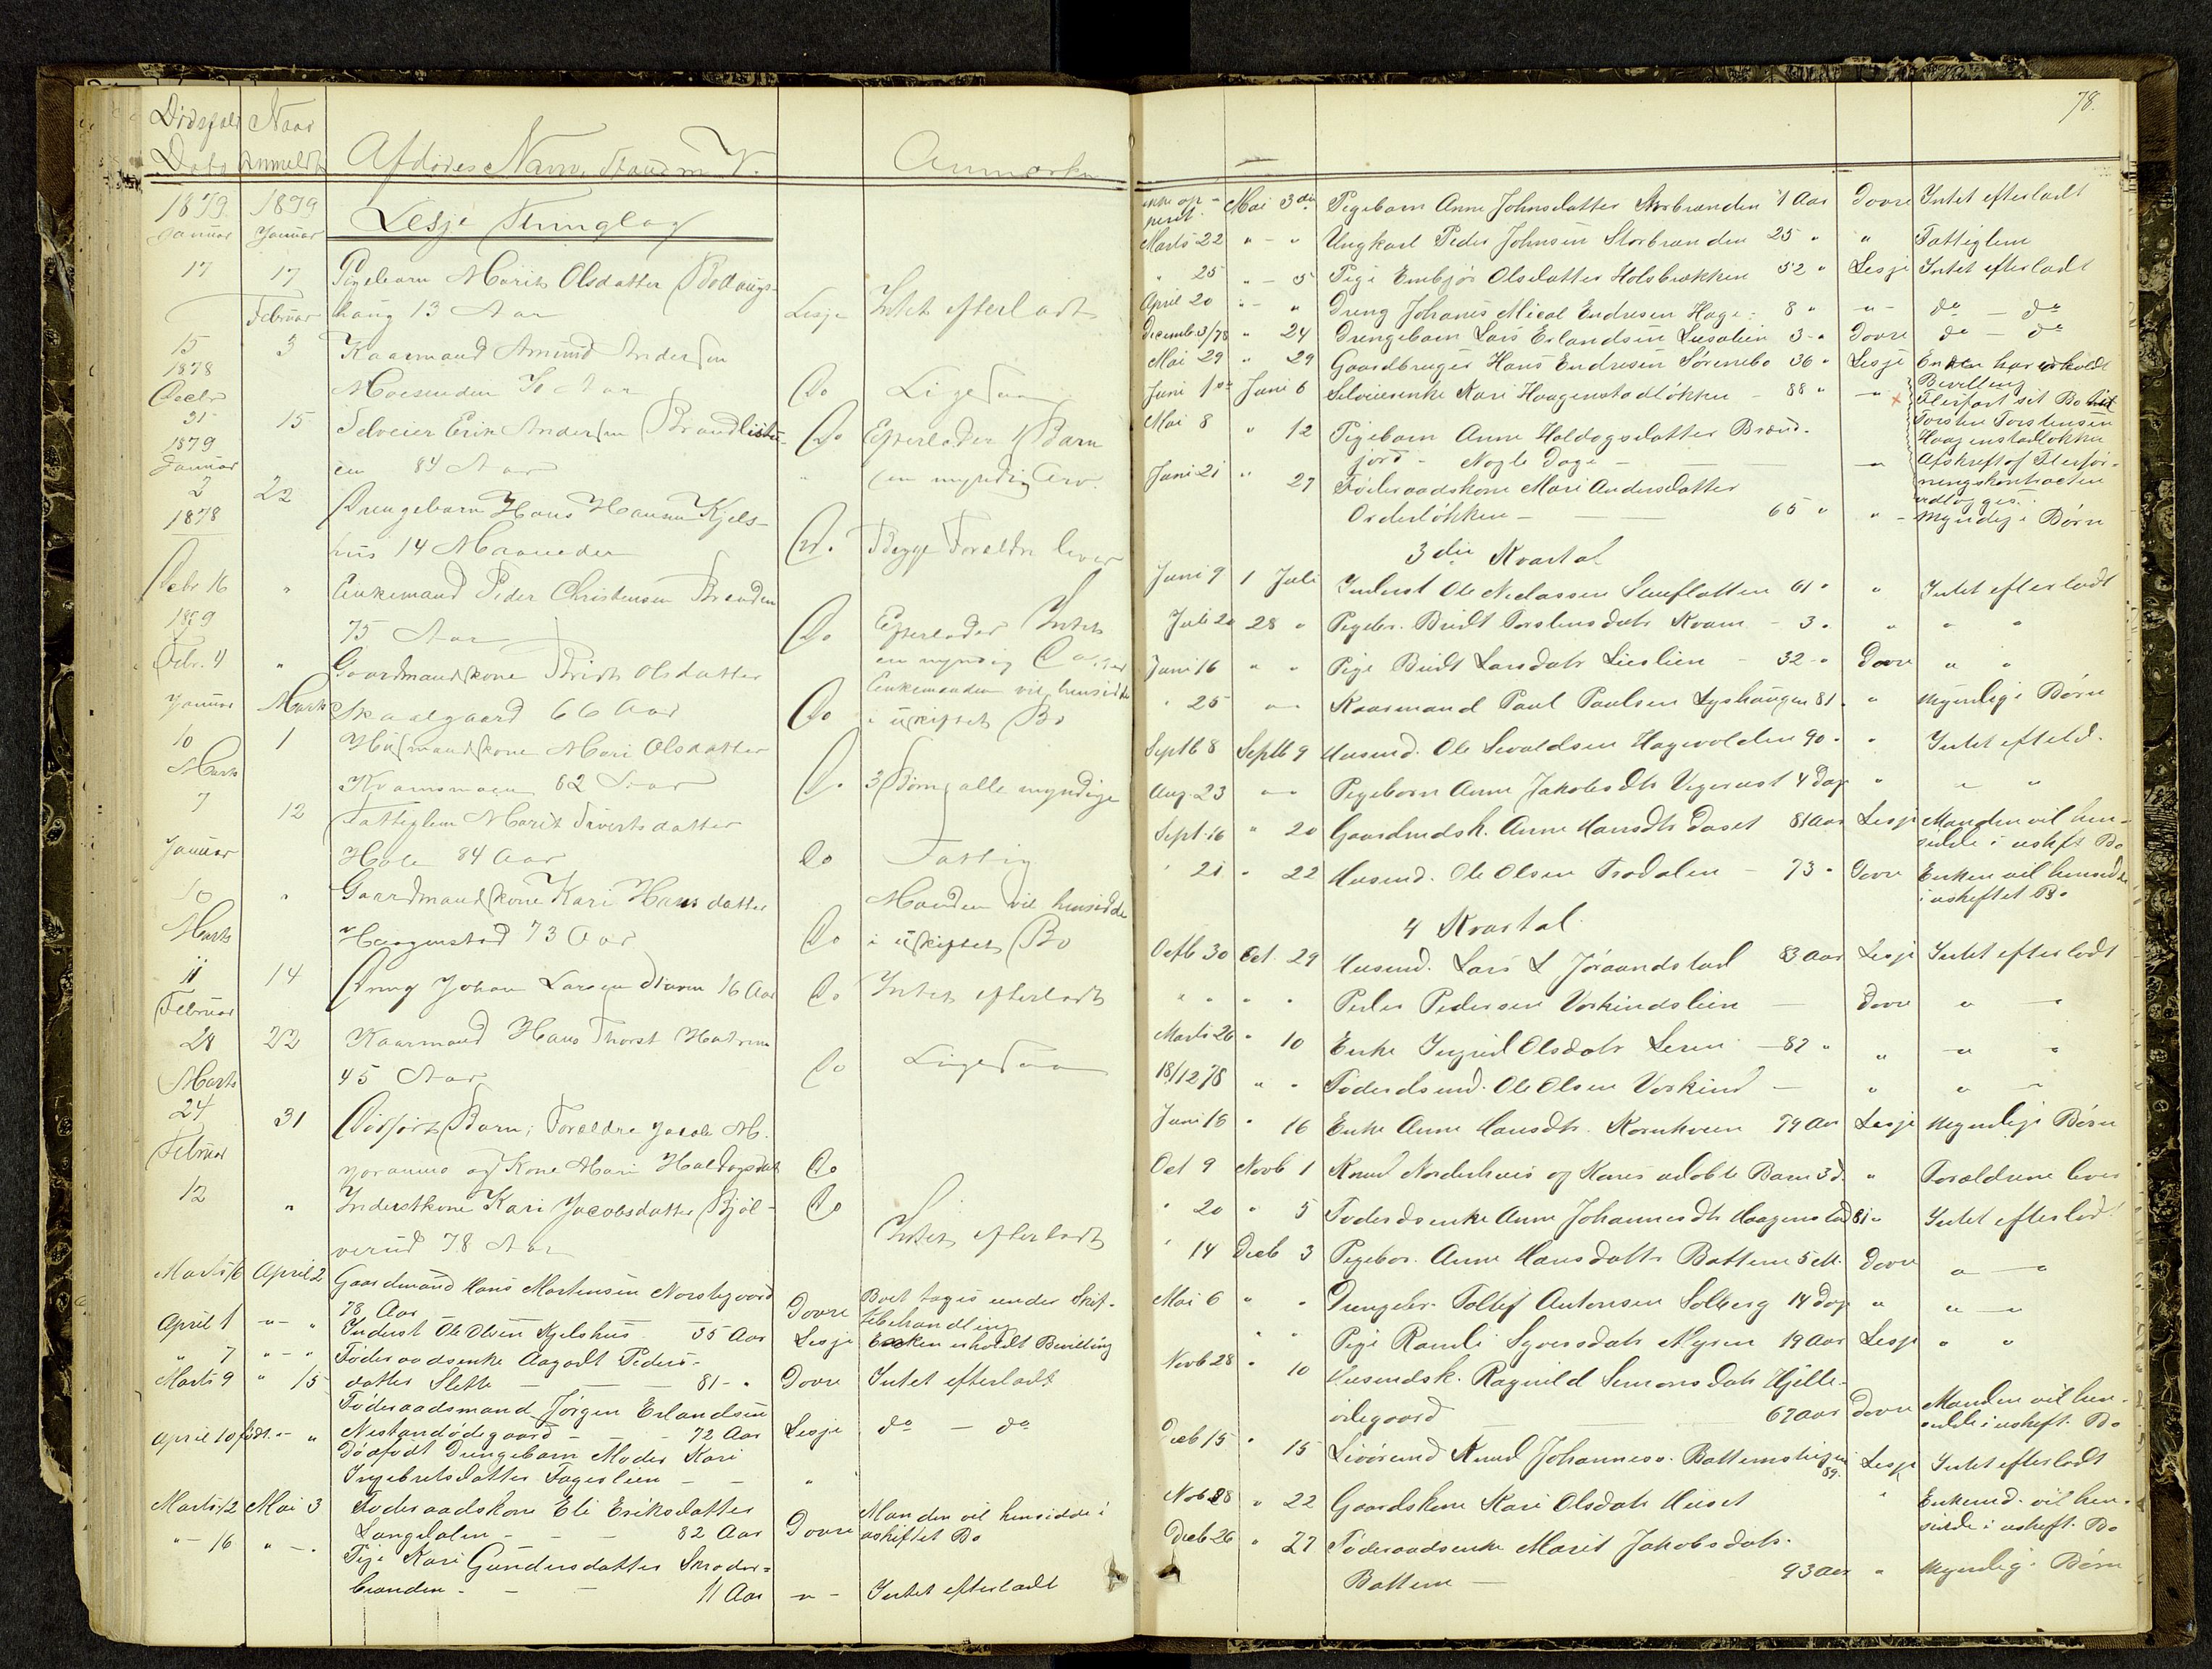 Dødsfald Naar
Dato Anmeldt Afdødes Navn, Stand m V. Anmærkn
1879 1879 Lesje Thinglag
Januar Januar
17 17 Pigebarn Marit Olsdatter Bottaugs-
Februar haug 13 Aar Lesje Intet efterladt
15 3 Kaarmand Amund Andersen
1878
Decbr Moesenden 70 Aar Do Ligesaa
31 15 Selveier Erik Andersen Brandlistu- Do Efterlader 1 Barn
1879
Januar en 84 Aar " en myndig Arv.
2 22 Drengebarn Hans Hansen Kjels-
1878
hus 14 Maaneder Do. Begge Forældre lever
Debr 16 " Enkemand Peder Christensen Brenden
1879 75 Aar Do Efterlader Intet
Febr. 4 " Gaardmandskone Brit Olsdatter en myndig
Januar Marts Skaalgaard 66 Aar Do Enkemanden vil hensidde
i uskiftet Bo
10 1 Husmandskone Mari Olsdatter
Marts Kvamsmoen 62 Aar Do 3 Børn, alle myndige
7 12 Fattiglem Marit Sivertsdatter
Januar Hole 84 Aar Do Fattig
10 " Gaardmandskone Kari Hansdatter Manden vil hensidde
Marts Haagenstad 73 Aar Do i uskiftet Bo
11 14 Dreng Johan Larsen 16 Aar Do Intet efterladt
Februar
28 22 Kaarmand Hans Thorst Hatrem
Marts 45 Aar Do Ligesaa
24 31 Dødfødt Barn, Forældre Jacob M.
Februar og Kone Mari Haldogsdatt Do
12 " Inderstkone Kari Jacobsdatter Bjøl- Do
verud 78 Aar Intet efterladt
Marts 16 April 2 Gaardmand Hans Mortensen Norstegaard
78 Aar Dovre Boet tages under Skif-
tebehandling
April 1 " - " Inderst Ole Olsen Kjelshus 35 Aar Lesje Enken erholdt Bevilling
" 7 " - " Føderaadsenke Aagodt Peders-
Marts 9 " 15 datter Slette - - 81 - " Dovre Intet efterladt
Føderaadsmand Jørgen Erlandsen
April 10 født " - " Nestandødegaard - - 72 Aar Lesje do - do
Dødfødt Drengebarn Moder Kari
Ingebretsdatter Fagerlien - - "
Marts 12 Mai 3 Føderaadskone Eli Eriksdatter
Langdalen - - - 82 Aar Dovre Manden vil hensidde i
uskiftet Bo
" - 16 " - " Pige Kari Gundersdatter Skroder-
brenden - - - 11 Aar - " - Intet efterladt
78.
ikke op-
Mai 3die Pigebarn Anne Johnsdatter Storbrenden 1 Aar Dovre Intet efterladt
Marts 22 " - " Ungkarl Peder Johnsen Storbrenden 25 " " Fattiglem
" 25 " - 5 Pige Embjør Olsdatter Holsbrækken 52 " Lesje Intet efterladt
April 20 " - " Dreng Johanes Micol Endresen Hage: 8 " " - do - do
Decemb 3/78 " 24 Drengebarn Lars Erlandsen Lusalien 3 - " Dovre do do
Mai 29 " 29 Gaardbruger Hans Endresen Sørenebo 36 " Lesje Enken har erholdt
Bevilling
Juni 1ste Juni 6 Selveierenke Kari Haagenstadløkken - 88 " - " x Flerfart sit Bo til
Torsten Torstensen
Haagenstadløkken
Mai 8 " 12 Pigebarn Anne Haldogsdatter Brænd-
jord - Nogle Dage - - " Afskrift af Flerfør-
ningskontracten
udlægges.
Juni 21 " 27 Føderaadskone Mari Andersdatter
Orderløkken - - 65 " " - Myndige Børn
3die Kvartal
Juni 9 1 Juli Inderst Ole Neclassen Sneflatten 61 " " Intet efterladt
Juli 20 28 " Pigebr. Bridt Torstensdatr Kvam - 3. " " "
Juni 16 " " Pige Bridt Larsdatr Lieslien - 32 - " Dovre " "
" 25 " Kaarmand Paul Paulsen Lyshaugen 81 " " Myndige Børn
Septb 8 Septb 9 Husmd. Ole Sevaldsen Hagevolden 90 " " Intet efterld.
Aug. 23 " Pigebarn Anne Jakobsdtr Vegerust 4 Dage " " "
Sept. 16 " 20 Gaardmdsk. Anne Hansdtr Daset 81 Aar Lesje Manden vil hen-
sidde i uskift Bo
" 21 " 22 Husmd. Ole Olsen Trodalen - 73 " Dovre Enken vil hensidde
i uskiftet Bo
4 Kvartal
Octb 30 Oct. 29 Husmd. Lars L Jøraandstad 83 Aar Lesje Intet efterladt
" " " " Peder Pedersen Vorkindslien - Dovre " "
Marts 26 " 10 Enke Ingrid Olsdatr Leren - 82 " " " "
18/12 78 " " Føderdsmd. Ole Olsen Vorkind - " " "
Juni 16 " 16 Enke Anne Hansdtr. Kornkveen 79 Aar Lesje Myndige Børn
Oct 9 Novb 1 Knud Norderhuus og Kones udøbte Barn 3 d. " Forældrene lever
" 20 " 5 Føderdsenke Anne Johannesdtr Haagenstad 81 " " Intet efterladt
" 14 Decb 3 Pigebar. Anne Hansdattr Bottem 5 M. Dovre " "
Mai 6 " " Drengebr. Tollef Antonsen Solberg 14 Dage " " "
" " Pige Ramli Syversdatr Nyren 19 Aar Lesje " "
Novb 28 " 10 Husmdsk. Ragnild Simonsdatr Hjelle-
ødegaard - - 67 Aar Dovre Manden vil hen-
sidde i uskift. Bo
Decb 15 " 15 Livøremd Knud Johanness. Bottemstuen
59. Lesje Intet efterladt
Nob 28 " 22 Gaardskone Kari Olsdatr Huset " Enkemd. vil hen-
sidde i uskift. Bo
Decb 26 " 27 Føderaadsenke Marit Jakobsdatr.
Bottem - 93 Aar " Myndige Børn